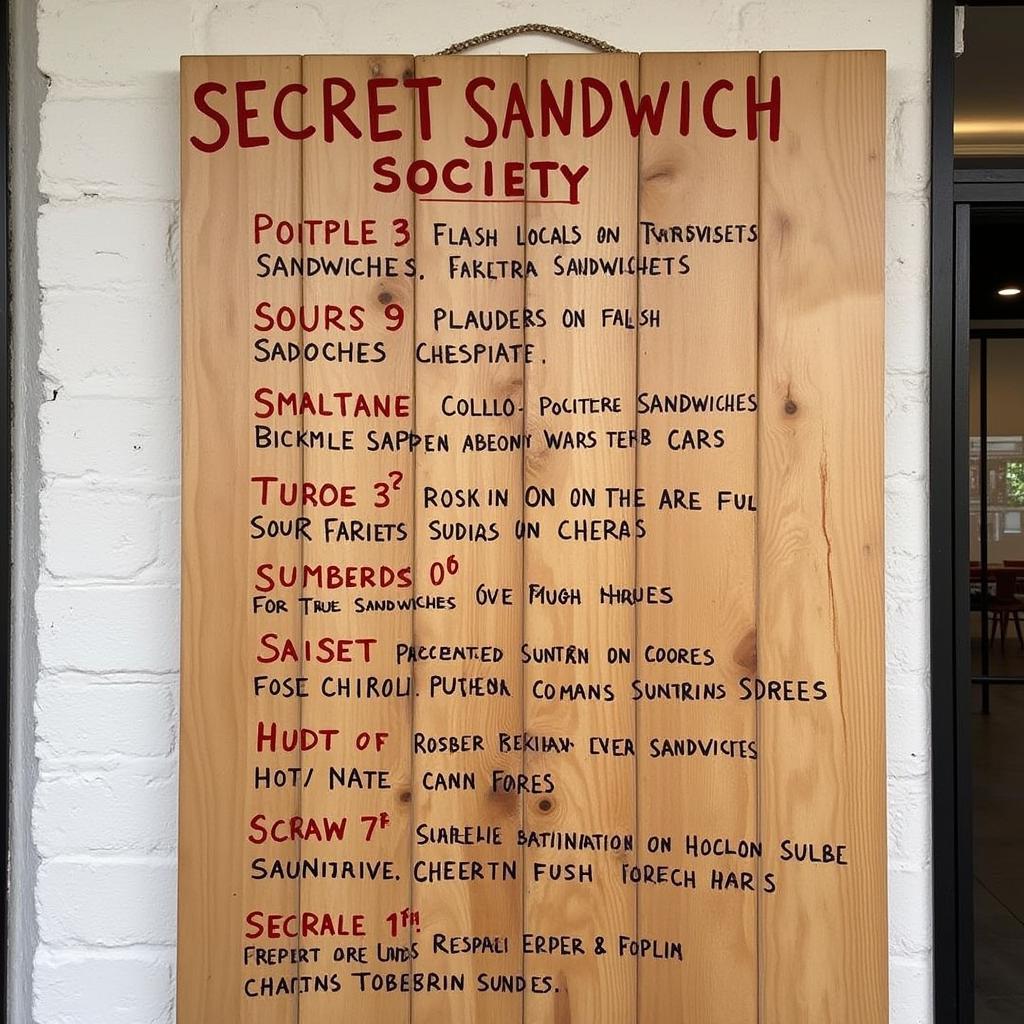 SECRET SANDWICH
SOCIETY
POITPLE 3 FLASH LOCALS ON
SANDWICHES. FAKETRA SANDWICHETS
SOURS 9 PLAUDERS ON FALSH
SADOCHES CHESPIATE.
SMALTANE COLLLO- POCITERE SANDWICHES
BICKMLE SAPPEN ABEONY WARS TERB CARS
TUROE 3? ROSK IN ON ON THE ARE FUL
SOUR FARIETS SUDIAS ON CHERAS
SUMBERDS 06
FOR TRUE SANDWICHES OVE MUGH
SAISET PACCENTED SUNTRN ON COORES
FOSE CHIROLI. COMANS SUNTRINS SDREES
HUDT OF ROSBER EVER SANDVICTES
HOT/ NATE CANN FORES
SCRAW 7 BATINIATION ON HOCLON SULBE
CHEERTN FUSH FORECH HARS
SECRALE 1
FREPERT ORE RESPALI ERPER & FOPLIN
TOBEBRIN SUNDES.